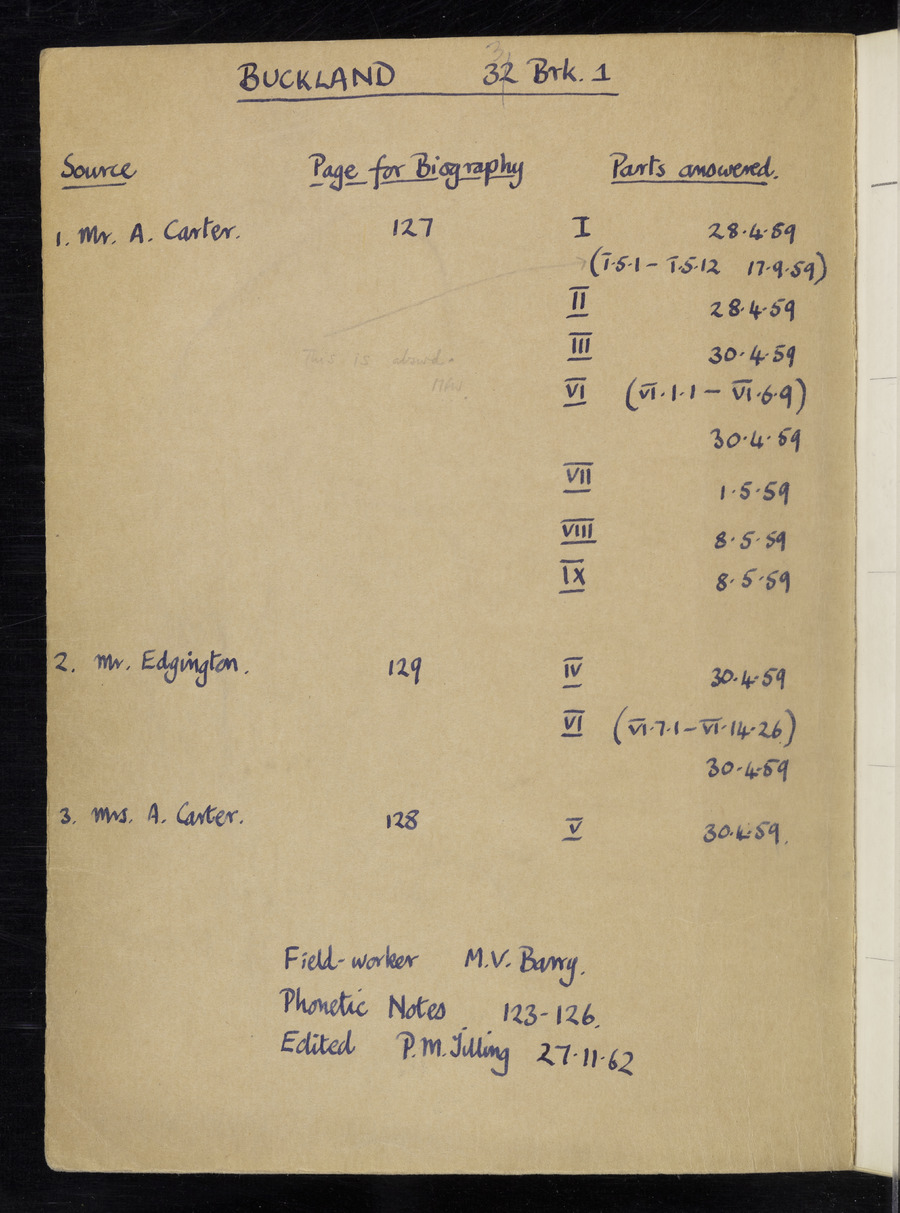 BUCKLAND 32 Brk. 1
3
Source Page for Biography Parts answered.
1. Mr. A. Carter. 127 I 28.4.59
(I.5.1 – I.5.12 17.9.59)
II 28.4.59
III 30.4.59
This is absurd.
VI (VI.1.1 – VI.6.9)
30.4.59
VII 1.5.59
VIII 8.5.59
IX 8.5.59
2. Mr. Edgington. 129 IV 30.4.59
VI (VI.7.1 – VI.14.26)
30.4.59
3. Mrs. A. Carter. 128 V 30.4.59.
Field-worker M.V. Barry.
Phonetic Notes 123-126.
Edited P.M. Tilling 27.11.62